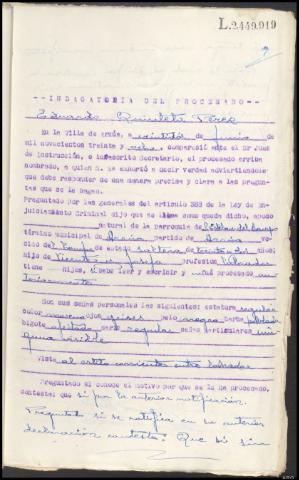 L.2.449.919
--INDAGATORIA DEL PROCESADO--
Eduardo Quintela Pérez
En la Villa de Arzúa, a veintitrés de Junio de
mil novecientos treinta y ocho, compareció ante el Sr Juez
de instrucción, e infrascrito Secretario, el procesado arriba
nombrado, a quien S. Sª exhortó a decir verdad advirtiendole
que debe responder de una manera precisa y clara a las pregun-
tas que se le hagan.
Preguntado por las generales del artículo 388 de la Ley de En-
juiciamiento Criminal dijo que se llama como queda dicho, apodo
natural de la parroquia de del Campo
término municipal de partido de ve-
cino del Campo de estado soltero de treinta años,
hijo de Vicente y Josefa profesión labrador
tiene hijos, si sabe leer y escribir y no fué procesado an
teriormente.
Son sus señas personales las siguientes: estatura regular
color moreno ojos grises pelo negro barba poblada
bigote afeitado cara regular señas particulares nin
guna visible
Viste al estilo corriente entre labrador
Preguntado si conoce el motivo por que se le ha procesado,
contesta: que si por la anterior notificación.
Preguntado si se ratifica en su anterior
declaración contesta: Que si sin